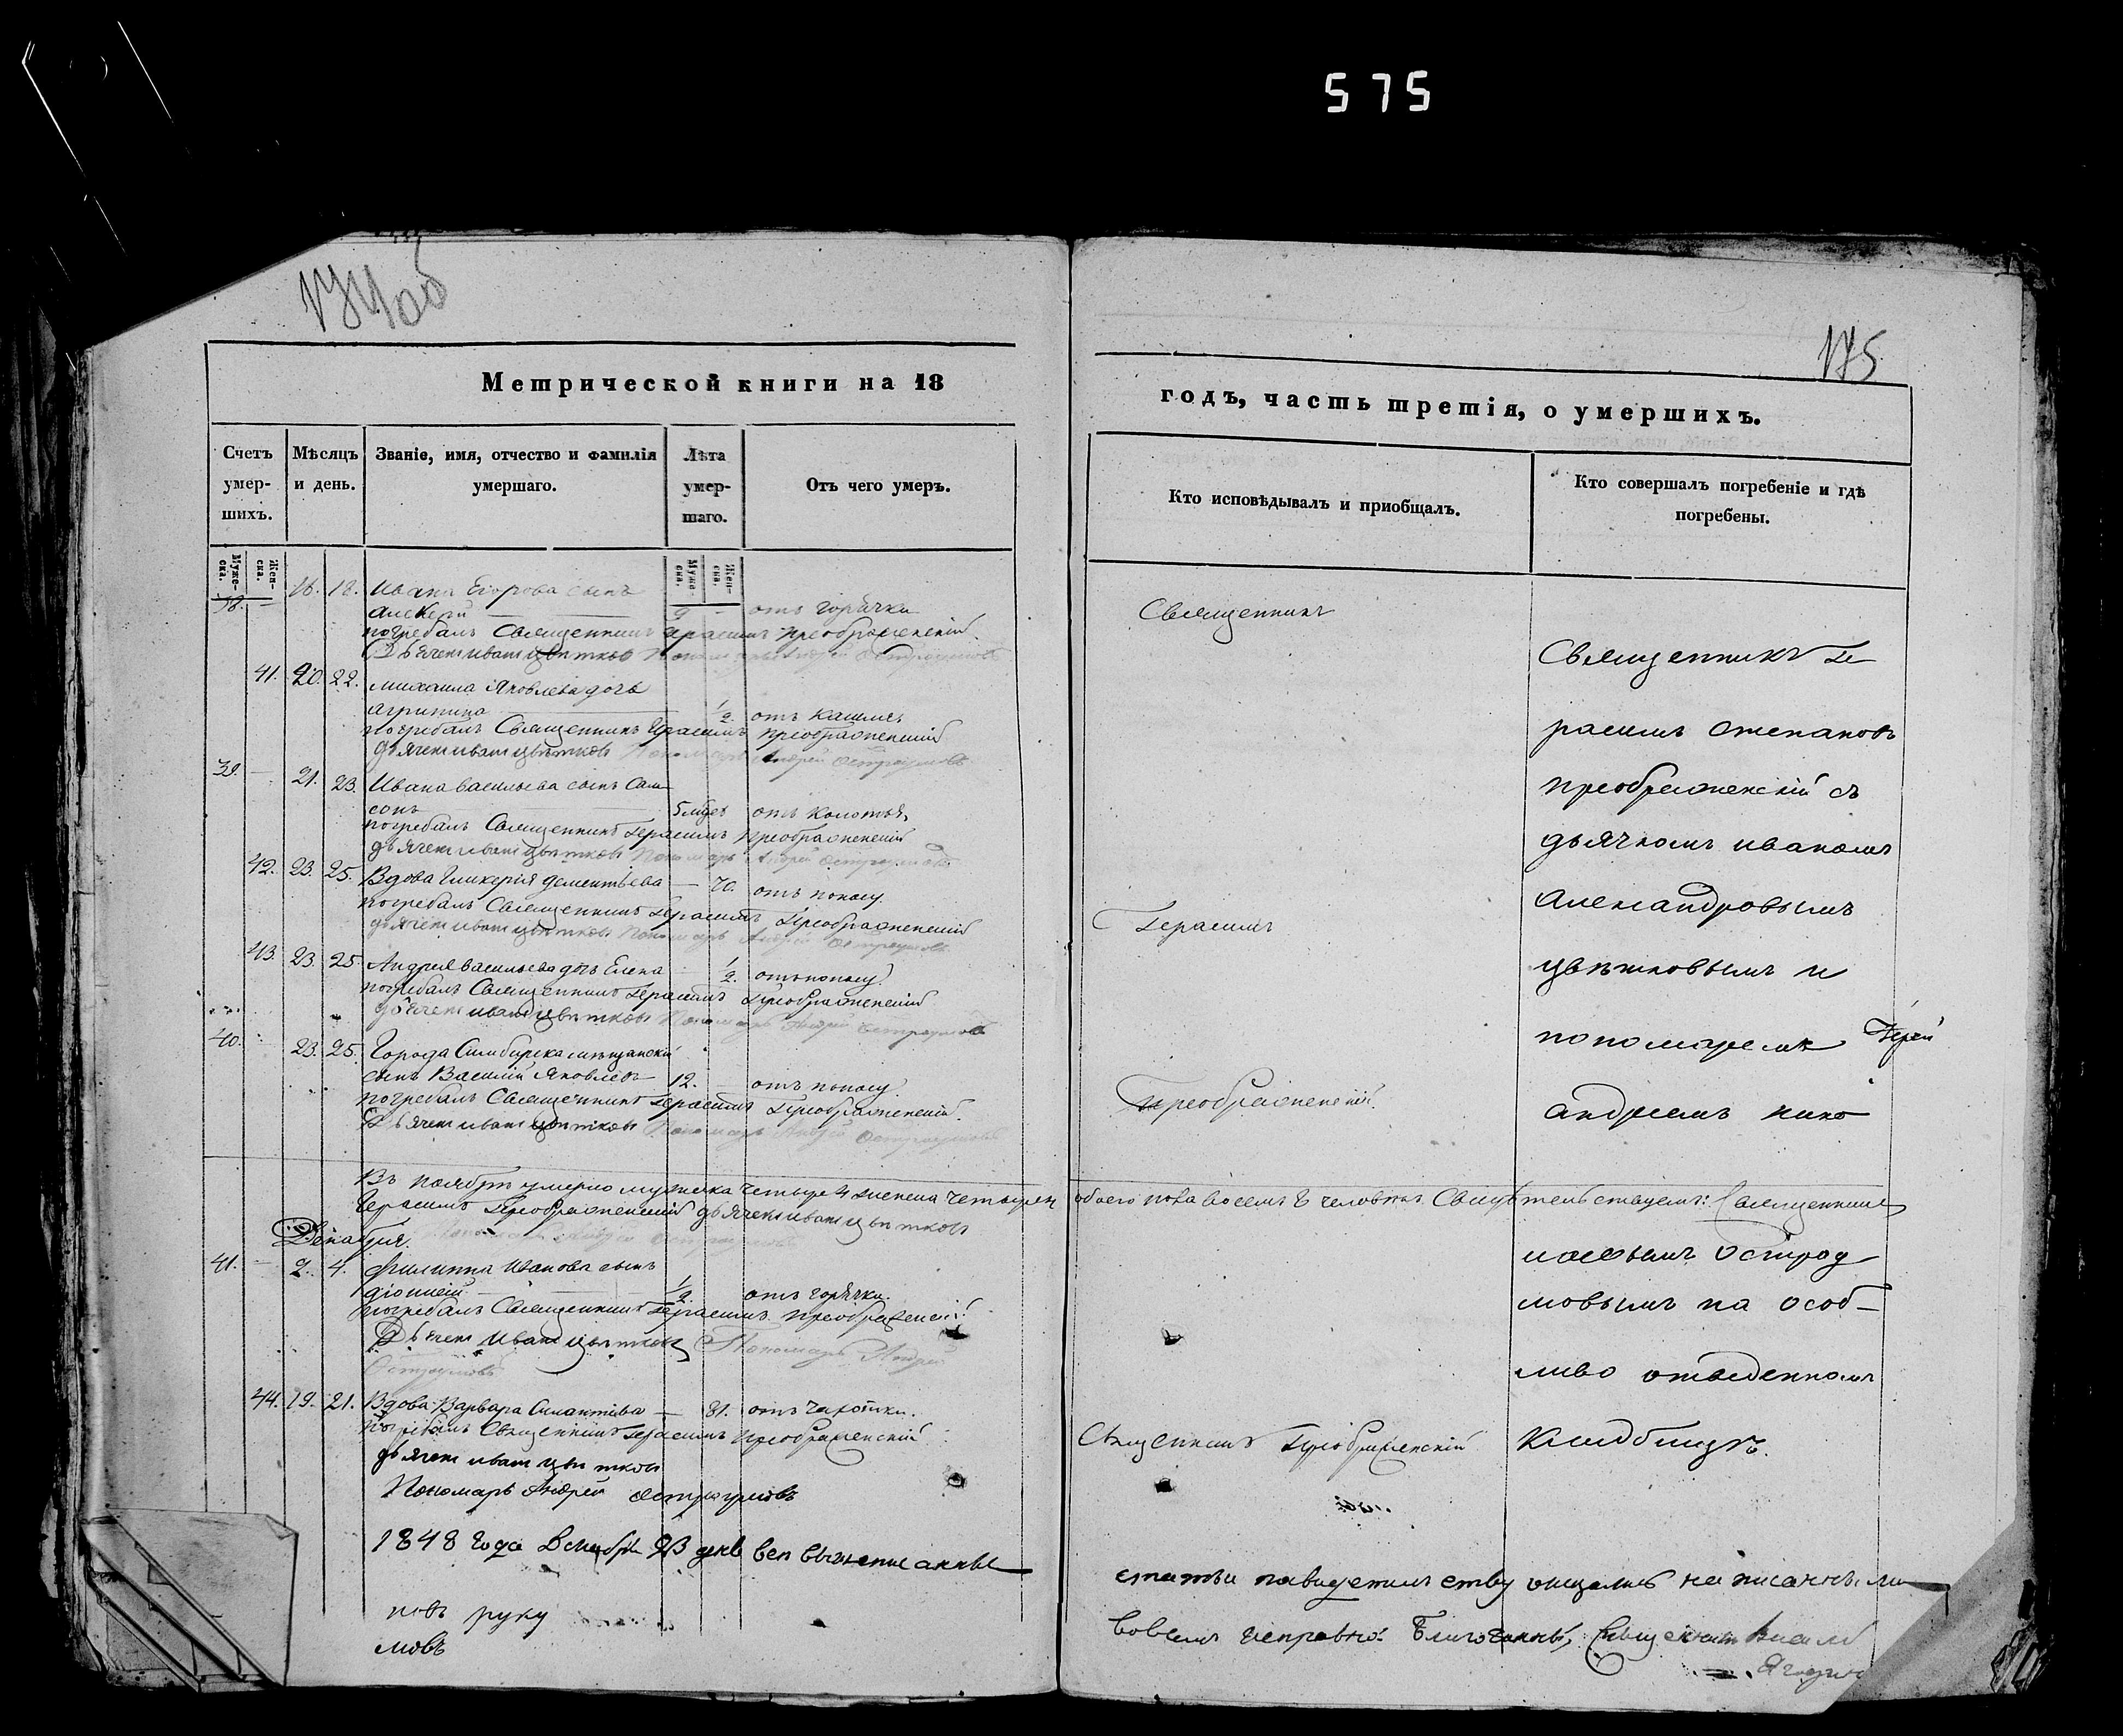 575
174об
175
Метрической книги на 18
годъ, часть третія, о умершихъ.
Счетъ умер-шихъ.
Мѣсяцъ и день.
Званіе, имя, отчество и фамилія умершаго.
Лѣта умер-шаго.
Отъ чего умеръ.
Кто исповѣдывалъ и приобщалъ.
Кто совершалъ погребеніе и гдѣ погребены.
Муже-ска.
Жен-ска.
Муже-ска.
Жен-ска.
38. — 16. 18. Ивана Егорова сынъ
Алексей — отъ горячки
погребалъ Священникъ Герасимъ Преображенскій
Дьячекъ Иванъ Цвѣтковъ Пономарь Андрей Остроумовъ
41. 20. 22. Михаила Яковлева дочь
Агрипина 1/2. отъ кашля
погребалъ Священникъ Герасимъ Преображенскій
дьячекъ Иванъ Цвѣтковъ Пономарь Андрей Остроумовъ
39. — 21. 23. Ивана Васильева сынъ Сам
сонъ 5 мцев отъ колотья
погребалъ Священникъ Герасимъ Преображенскій
дьячекъ Иванъ Цвѣтковъ Пономарь Андрей Остроумовъ
42. 23. 25. Вдова Гликерія Дементьева — 70. отъ поносу.
погребалъ Священникъ Герасимъ Преображенскій
дьячекъ Иванъ Цвѣтковъ Пономарь Андрей Остроумовъ
43. 23. 25. Андрея Васильева дочь Елена 1/2. отъ поносу
погребалъ Священникъ Герасимъ Преображенскій
дьячекъ Иванъ Цвѣтковъ Пономарь Андрей Остроумовъ
40. 23. 25. Города Симбирска мещанскій
сынъ Василій Яковлевъ 12. — отъ поносу
погребалъ Священникъ Герасимъ Преображенскій.
Дьячекъ Иванъ Цвѣтковъ Пономарь Андрей Остроумовъ
Въ ноябрѣ умерло мужеска четыре 4 женска четыре 4 обоего пола восемь 8 человѣкъ. Свидѣтельствуемъ: Священникъ
Герасимъ Преображенскій дьячекъ Иванъ Цвѣтковъ
Пономарь Андрей Остроумовъ
Декабря.
41. — 2. 4. Филиппа Иванова сынъ
Діонисій 1/2. отъ горячки.
погребалъ Священникъ Герасимъ Преображенскій
Дьячекъ Иванъ Цвѣтковъ Пономарь Андрей
Остроумовъ
44. 19. 21. Вдова Варвара Силантіева — 81. отъ чахотки.
погребалъ Священникъ Герасимъ Преображенскій
дьячекъ Иванъ Цвѣтковъ
Пономарь Андрей Остроумовъ
Священникъ
Герасимъ
Преображенскій.
Священникъ Преображенскій
Священникъ Ге
расимъ Степановъ
Преображенскій съ
дьячкомъ Иваномъ
Александровымъ
Цвѣтковымъ и
пономаремъ
Андреемъ Нико
лаевымъ Остроу
мовымъ на особ-
ливо отведенномъ
кладбищѣ.
1848 года Декабря 23 дня все вышеписанные
статьи по свидетельству оказались написанными
во всемъ исправно. Благочинный, Священникъ Василій
руку
мовъ